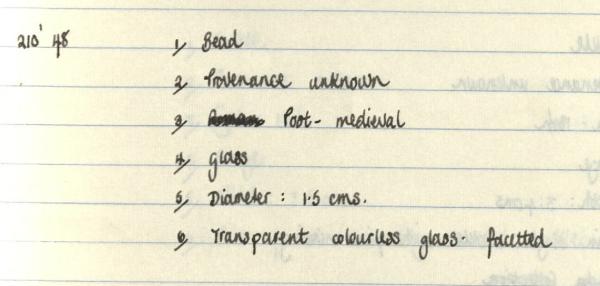 210' 48 1/ Bead
2/ Provenance unknown
3/ Roman Post-medieval
4/ glass
5/ Diameter : 1.5 cms.
6/ Transparent colourless glass. facetted